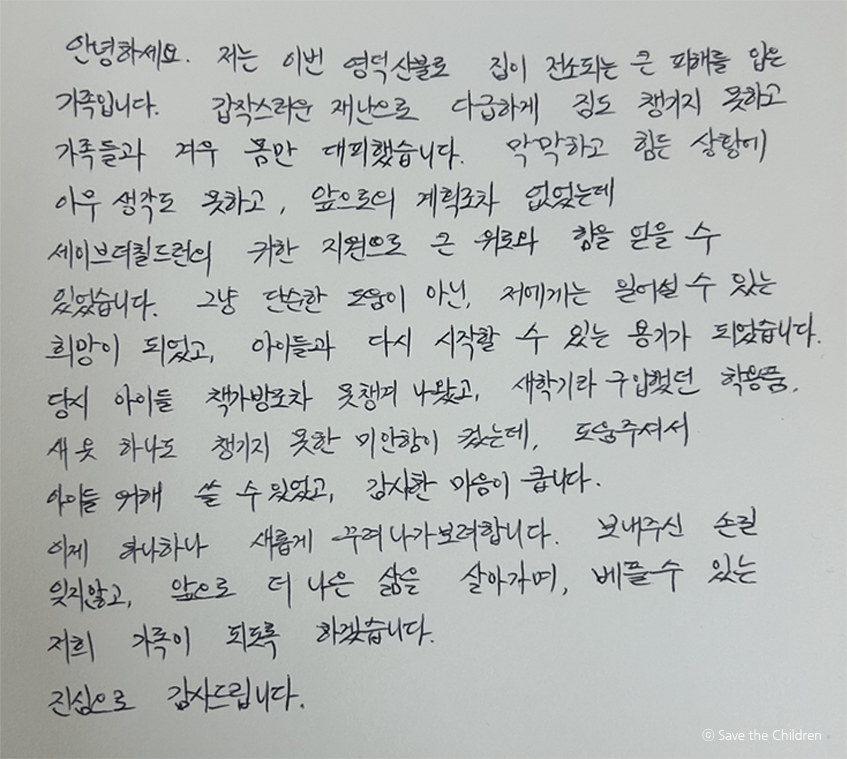 안녕하세요. 저는 이번 영덕산불로 집이 전소되는 큰 피해를 입은
가족입니다. 갑작스러운 재난으로 다급하게 짐도 챙기지 못하고
가족들과 겨우 몸만 대피했습니다. 막막하고 힘든 상황에
아무 생각도 못하고, 앞으로의 계획조차 없었는데
세이브더칠드런의 귀한 지원으로 큰 위로와 힘을 얻을 수
있었습니다. 그냥 단순한 도움이 아닌, 저에게는 일어설 수 있는
희망이 되었고, 아이들과 다시 시작할 수 있는 용기가 되었습니다.
당시 아이들 책가방조차 못챙겨 나왔고, 새학기라 구입했던 학용품,
새 옷 하나도 챙기지 못한 미안함이 컸는데, 도움주셔서
아이들 위해 쓸 수 있었고, 감사한 마음이 큽니다.
이제 하나하나 새롭게 꾸려나가보려합니다. 보내주신 손길
잊지않고, 앞으로 더 나은 삶을 살아가며, 베풀수 있는
저희 가족이 되도록 하겠습니다.
진심으로 감사드립니다.
ⓒ Save the Children